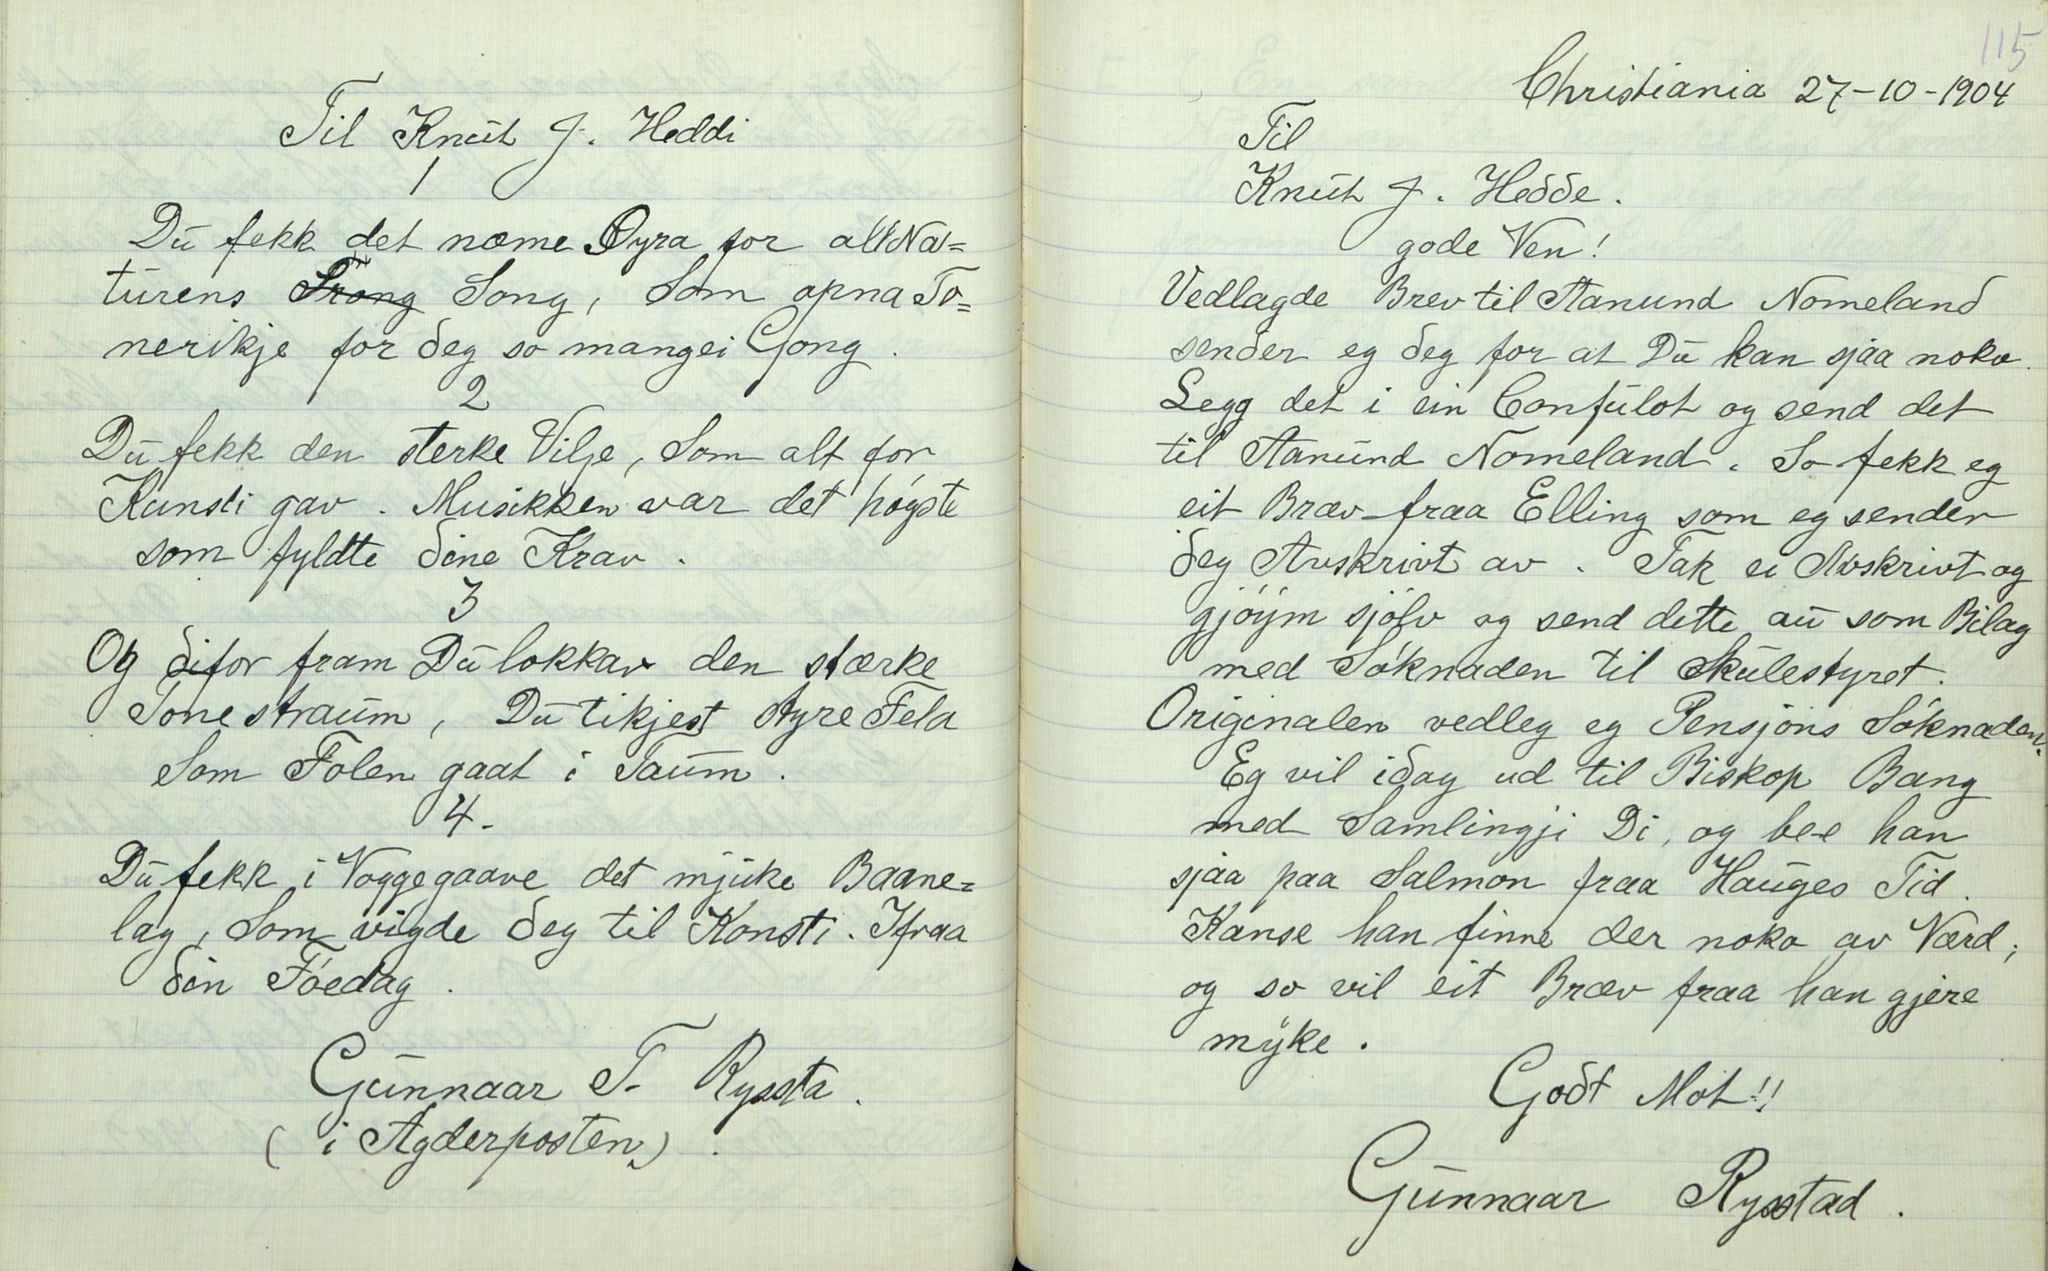 Til Knut J. Heddi
1
Du fekk det næme Öyra for alt Na=
turens Trong Song, Som opna To=
nerikje for deg so mangei Gong.
2
Du fekk den sterke Vilje, Som alt for
Kunsti gav. Musikken var det högste
som fyldte dine Krav.
3
Og difor fram Du lokkar den stærke
Tonestraum, Du tikjest styre Fela
Som Folen gaat i Taum.
4-
Du fekk i Voggegaave det mjuke Baane=
lag, Som vigde deg til Konsti. Ifraa
din Föedag.
Gunnaar T- Ryssta.
(i Agderposten).
115
Christiania 27-10-1904
Til
Knut J. Hedde.
gode Ven!
Vedlagde Brev til Aanund Nomeland
sender eg deg for at Du kan sjaa noko.
Legg det i ein Confulot og send det
til Aanund Nomeland. So fekk eg
eit Bræv fraa Elling som eg sender
deg Avskrivt av. Tak ei Avskrivt og
gjöym sjölv og send dette au som Bilag
med Söknaden til Skulestyret.
Originalen vedleg eg Pensjons Söknaden.
Eg vil idag ud til Biskop Bang
med Samlingji Di, og bee han
sjaa paa Salmon fraa Hauges Tid.
Kanse han finne der noko av Værd;
og so vil eit Bræv fraa han gjere
myke.
Godt Mot!!
Gunnaar Rysstad.